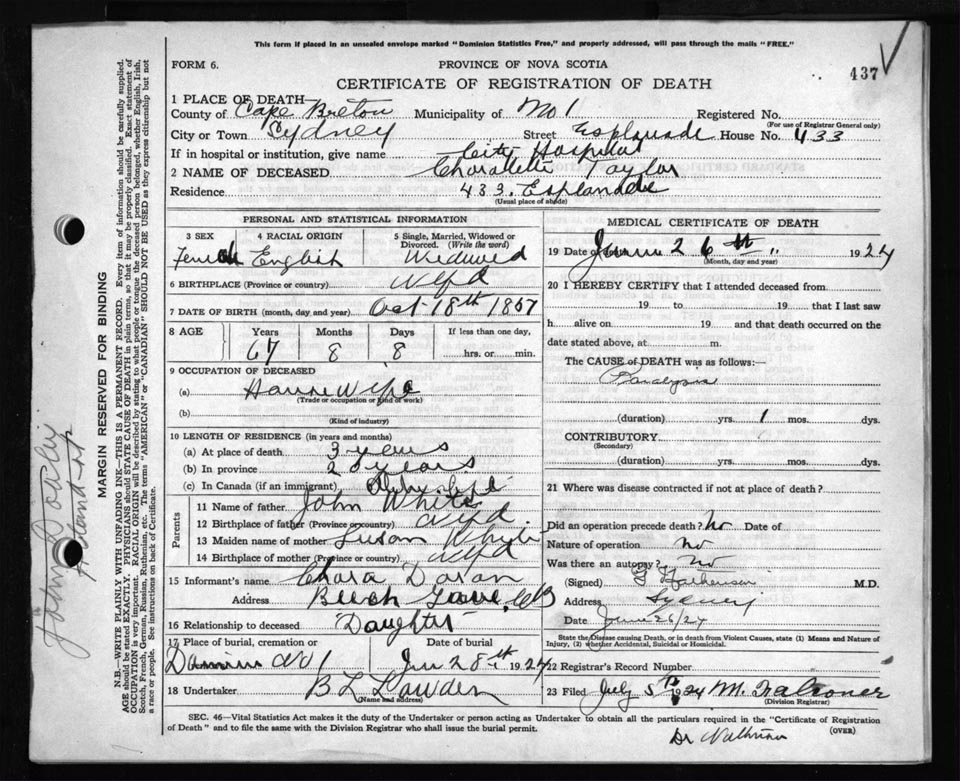 This form if placed in an unsealed envelope marked "Dominion Statistics Free," and properly addressed, will pass through the mails "FREE."
FORM 6.
PROVINCE OF NOVA SCOTIA
437
CERTIFICATE OF REGISTRATION OF DEATH
1 PLACE OF DEATH
County of Cape Breton Municipality of No 1 Registered No.
(For use of Registrar General only)
City or Town Sydney Street Esplanade House No. 433
If in hospital or institution, give name City Hospital
2 NAME OF DECEASED Taylor
Residence 433. Esplanade
(Usual place of abode)
PERSONAL AND STATISTICAL INFORMATION
3 SEX 4 RACIAL ORIGIN 5 Single, Married, Widowed or Divorced. (Write the word)
English
6 BIRTHPLACE (Province or country) Nfld
7 DATE OF BIRTH (month, day, and year) Oct 18th 1857
8 AGE Years Months Days If less than one day,
67 8 8 hrs. or min.
9 OCCUPATION OF DECEASED
(a)
(Trade or occupation or kind of work)
(b)
(Kind of industry)
10 LENGTH OF RESIDENCE (in years and months)
(a) At place of death 3 years
(b) In province years
(c) In Canada (if an immigrant)
Parents
11 Name of father John White
12 Birthplace of father (Province or country) Nfld.
13 Maiden name of mother Susan
14 Birthplace of mother (Province or country) Nfld
15 Informant's name Doran
Address
16 Relationship to deceased Daughter
17 Place of burial, cremation or Date of burial
No 1 Jun 28th 1924
18 Undertaker B L
(Name and address)
MEDICAL CERTIFICATE OF DEATH
19 Date of death 26th 1924
(Month, day and year)
20 I HEREBY CERTIFY that I attended deceased from
19 to 19 that I last saw
h alive on 19 and that death occurred on the
date stated above, at m.
The CAUSE of DEATH was as follows:
Paralysis
(duration) yrs. 1 mos. dys.
CONTRIBUTORY
(Secondary)
(duration) yrs. mos. dys.
21 Where was disease contracted if not at place of death?
Did an operation precede death? No Date of
Nature of operation No
Was there an autopsy? No
(Signed) M.D.
Address Sydney
Date June 26/24
State the Disease causing Death, or in death from Violent Causes, state (1) Means and Nature of Injury, (2) whether Accidental, Suicidal or Homicidal.
22 Registrar's Record Number
23 Filed July 5th 1924 M. Falconer
(Division Registrar)
SEC. 46—Vital Statistics Act makes it the duty of the Undertaker or person acting as Undertaker to obtain all the particulars required in the "Certificate of Registration
of Death" and to file the same with the Division Registrar who shall issue the burial permit.
(OVER)
Dr
MARGIN RESERVED FOR BINDING
N.B.—WRITE PLAINLY WITH UNFADING INK—THIS IS A PERMANENT RECORD. Every item of information should be carefully supplied.
AGE should be stated EXACTLY. PHYSICIANS should STATE CAUSE OF DEATH in plain terms, so that it may be properly classified. Exact statement of
OCCUPATION is very important. RACIAL ORIGIN will be described by stating to what people or tongue the deceased person belonged, whether English, Irish,
Scotch, French, German, Russian, Ruthenian, etc. The terms "AMERICAN" or "CANADIAN" SHOULD NOT BE USED as they express citizenship but not
a race or people. See instructions on back of Certificate.
John